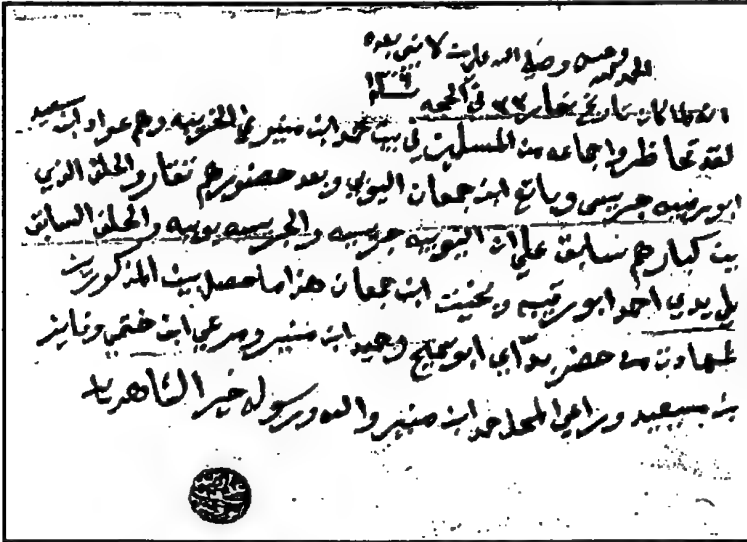 الحمد لله وحده وصلى الله على من لا نبي بعده
سنة ١٣٠٩
انه لما كان تاريخ نهار ٢٣ في الحجه
لقد تحاظروا جماعه من المسلمين في بيت محمد ابن منير في الخريبه وهم عواد ابن سعيد
ابو رقيبه جريسي وباتع ابن جمعان اليوبي وبعد حضورهم تقاروا الحلف الذي
بين كبارهم سابق على ان اليوبيه جريسيه والجريسيه يوبيه والحلف السابق
على يدي احمد ابو رقيبه وبخيت ابن جمعان هذا ما حصل بين المذكورين
شهادة من حضر ابو سميح وحميد ابن منير ومرعي ابن ختمي وفايز
بن سعيد وراعي المحل احمد ابن منير والله ورسوله خير الشاهدين